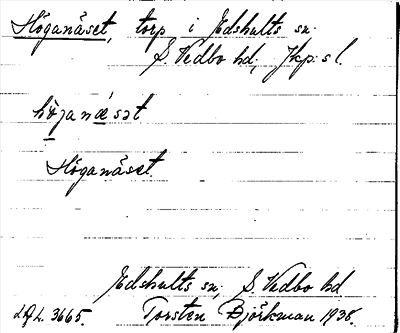 Höganäset, torp i Edshults sn.
S. Vedbo hd, Jkp:s l.
höganä́sət
Höganäset
Edshults sn, S. Vedbo hd
LAL 3665. Torsten Björkman 1938.